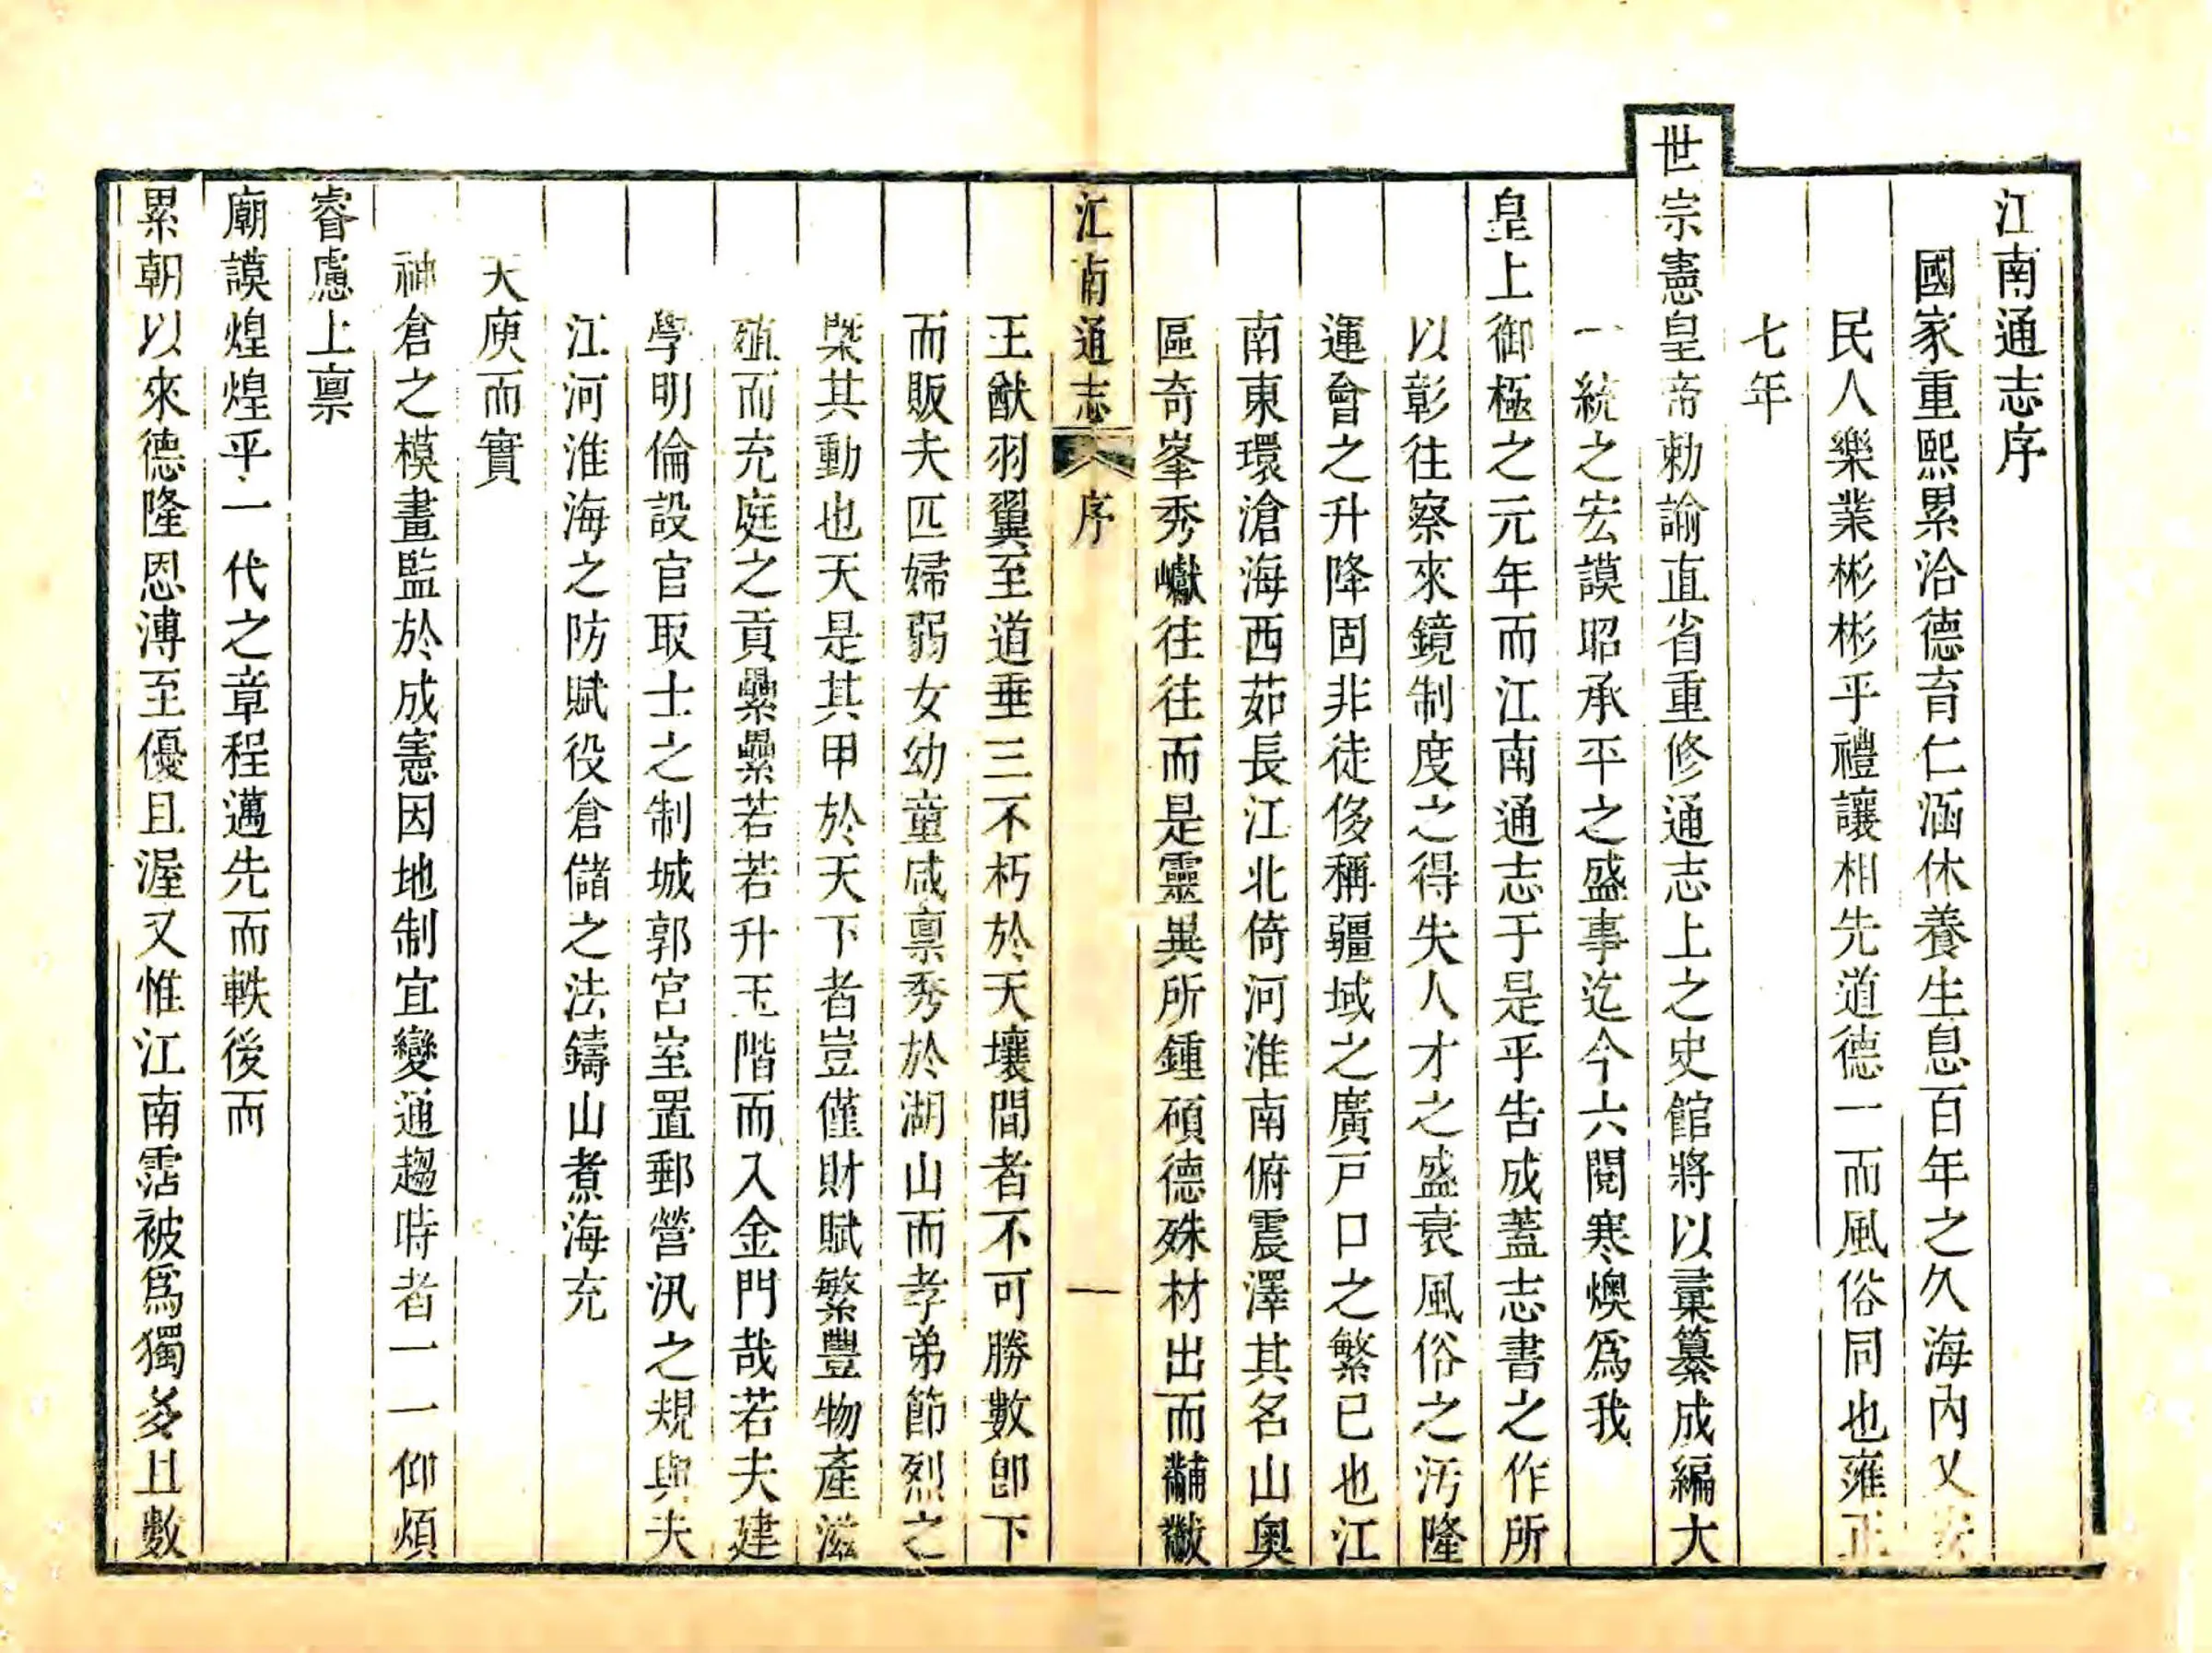 江南通志序
國家重熙累洽德育仁涵休養生息百年之久海內乂安
民人樂業彬彬乎禮讓相先道德一而風俗同也雍正
七年
世宗憲皇帝勅諭直省重修通志上之史館將以彙纂成編大
一統之宏謨昭承平之盛事迄今六閱寒燠爲我
皇上御極之元年而江南通志于是乎告成蓋志書之作所
以彰往察來鏡制度之得失人才之盛衰風俗之汚隆
運會之升降固非徒侈稱疆域之廣戸口之繁已也江
南東環滄海西茹長江北倚河淮南俯震澤其名山奥
區奇峯秀巘往往而是靈異所鍾碩德殊材出而黼黻
江南通志 序 一
王猷羽翼至道垂三不朽於天壤間者不可勝數卽下
而販夫匹婦弱女幼童咸禀秀於湖山而孝弟節烈之
槩其動也天是其甲於天下者豈僅財賦繁豐物產滋
殖而充庭之貢纍纍若若升玉階而入金門哉若夫建
學明倫設官取士之制城郭宮室置郵營汛之規與夫
江河淮海之防賦役倉儲之法鑄山煮海充
天庾而實
神倉之模畫監於成憲因地制宜變通趨時者一一仰煩
睿慮上禀
廟謨煌煌乎一代之章程邁先而軼後而
累朝以來德隆恩溥至優且渥又惟江南霑被爲獨多且數